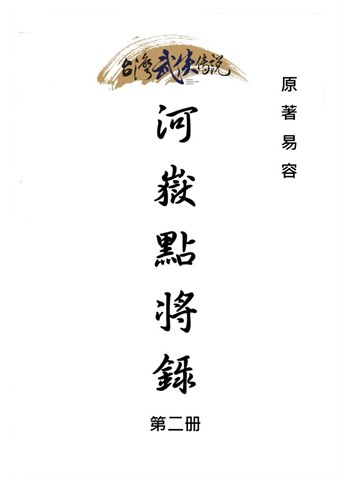 台灣武俠傳説
原著易容
河嶽點將錄
第二册